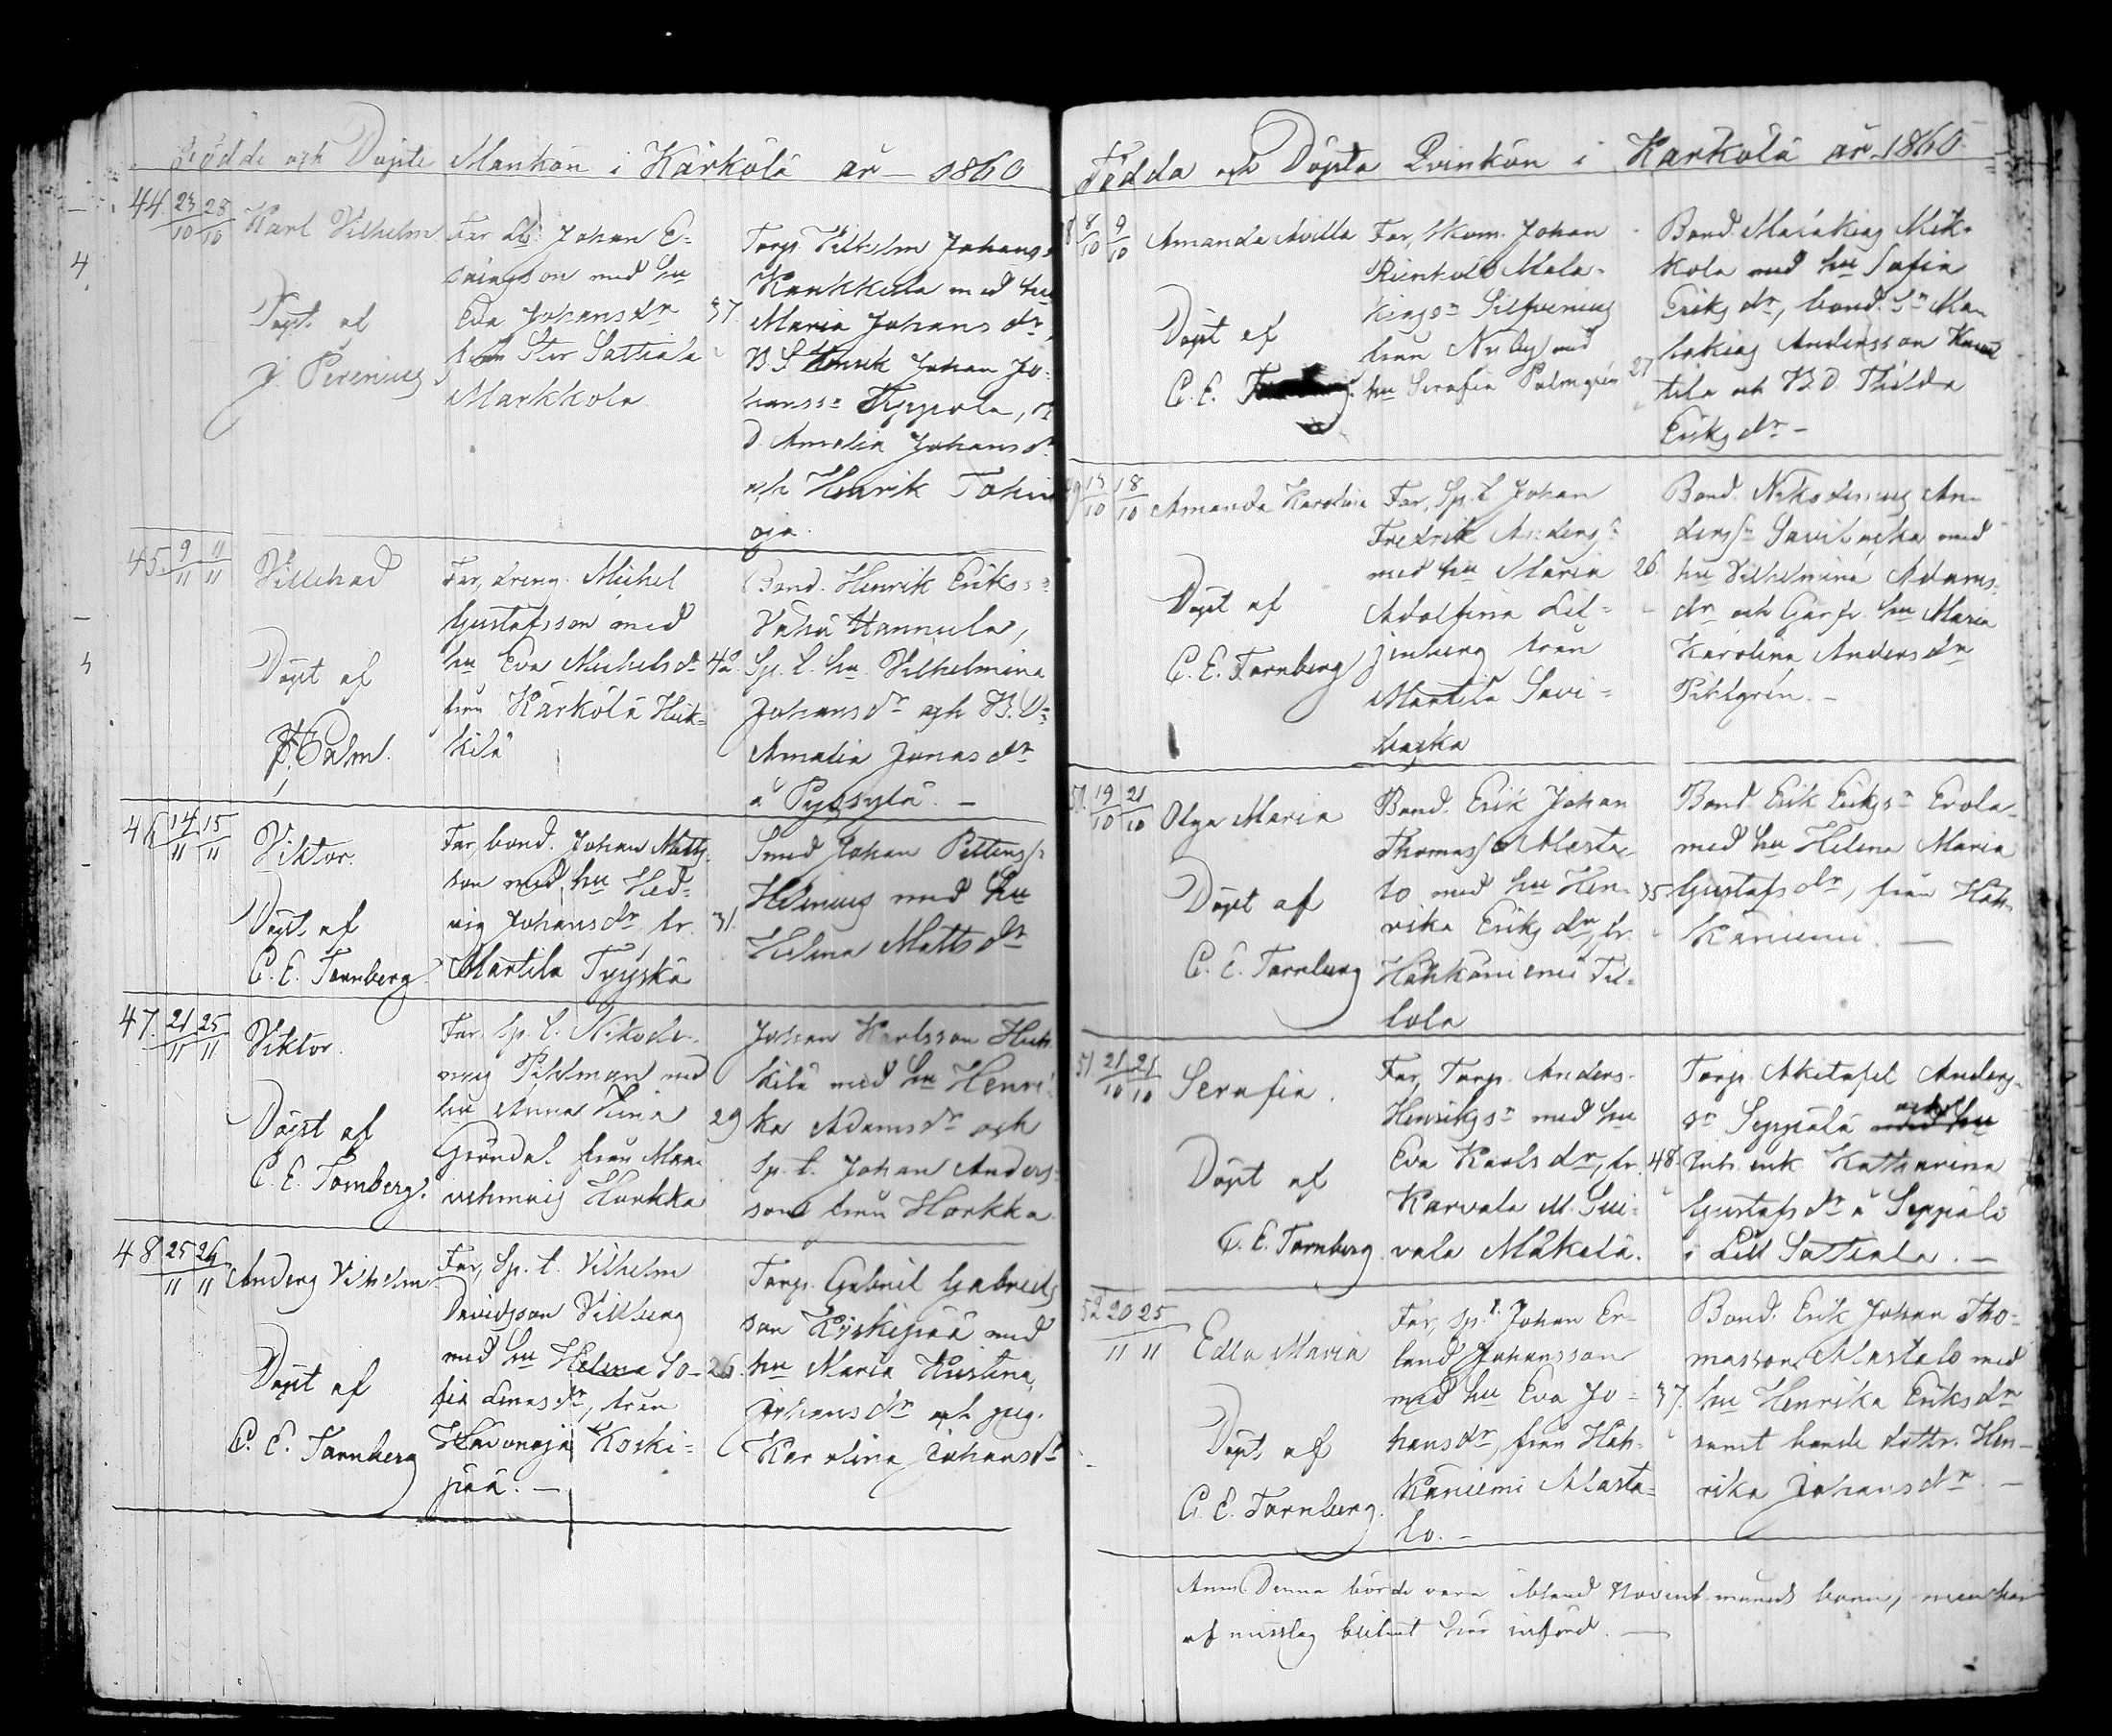 Födde och Döpte Mankön i Kärkölä år 1860
44. 23/10 25/10 Karl Vilhelm
Döpt af
J. Perenius
Far Johan E-
rikssson med hu
Eva Johansdr 37
från Stor Sattiala
Markkola
Torp. Vilhelm Johanss
Kaukkela med hu
Maria Johansdr,
B. S. Henrik Johan Jo-
hanssn Eyppola,
D. Amalia Johansdr
och Henrik
oja.
45. 9/11 11/11 Villehad
Döpt af
Palm.
Far, dreng. Michel
Gustafsson med
hu Eva Michelsdr 42.
från Kärkölä Huk-
kila
Bond. Henrik Erikss
Vähä Hannula,
Sp. l. hu Vilhelmina
Johansdr och B. D.
Amalia Jonasdr
å
46 14/11 15/11 Viktor.
Döpt af
C. E. Tornberg
Far, bond. Johan Matts-
son med hu Hed-
vig Johansdr fr. 31.
Martila Tyyskä
Smed Johan Petterss
Helenius med hu
Helena Mattsdr
47. 21/11 25/11 Viktor.
Döpt af
C. E. Tornberg.
Far, Sp. l. Nikode-
mus Pihlman med
hu Anna Lina 29
Gröndal från Maa-
Horkka
Johan Karlsson Huk-
kila med hu Henri-
ka Adamsdr och
Sp. l. Johan Anders-
son från Horkka.
48 25/11 26/11 Anders Vilhelm
Döpt af
C. E. Tornberg
Far, Sp. l. Vilhelm
Davidsson Villberg
med hu Helena So- 26.
fia från
Hävonoja Koski-
pää. —
Torp. Gabriel Gabriels
son Koskipää med
hu Maria Kristina
Johansdr och pig.
Karolina Johansdr
Födda och Döpta Qvinkön i Kärkölä år 1860
8/10 9/10 Amanda Avilla
Döpt af
C. E.
Far, Skom. Johan
Reinhold Mala-
kiass Silfvenius
från Nyby med
hu Serafia Palmgren 27
Bond. Malakias Mik-
kola med hu Sofia
Eriksdr, bond. Sn Ma-
lakias Andersson
tila och B. D. Thilda
Eriksdr —
13/10 18/10 Amanda Karolina
Döpt af
C. E. Tornberg
Far, Sp. l. Johan
Fredrik Anderss
med hu Maria 26
Adolfina Lil-
jeberg från
Martila Savi-
backa
Bond. Nikodemus An-
derss Savibacka med
hu Vilhelmina Adams-
dr och Garfv. hu Maria
Karolina Andersdr
Pihlgrén. —
19/10 21/10 Olga Maria
Döpt af
C. E. Tornberg
Bond. Erik Johan
Thomass Masta-
lo med hu Hen- 35
rika Eriksdr, fr.
Hähkäniemi Til-
lola
Bond Erik Erikss Erola
med hu Helena Maria
Gustafsdr, från Häh-
käniemi. —
51 21/10 21/10 Serafia.
Döpt af
C. E. Tornberg
Far, Torp. Anders
Henrikss med hu
Eva Karlsdr, fr. 48.
Karvala M.
vala Mäkelä.
Torp. Akitofel Anders-
sn Seppälä med hu
och
Inh. enk. Katharina
Gustafsdr å Seppälä
i Lill Sattiala. —
52 20/11 25/11 Edla Maria
Döpt af
C. E. Tornberg.
Far, Sp. l. Johan Er-
land Johansson
med hu Eva Jo- 37.
hansdr, från Häh-
käniemi Masta-
lo. —
Bond. Erik Johan Tho-
masson Mastalo med
hu Henrika Eriksdr
samt bonde dottr. Hen-
rika Johansdr —
Anm. Denna borde vara ibland Novemb. månads barn, men har
af misstag blifvit här införd. —